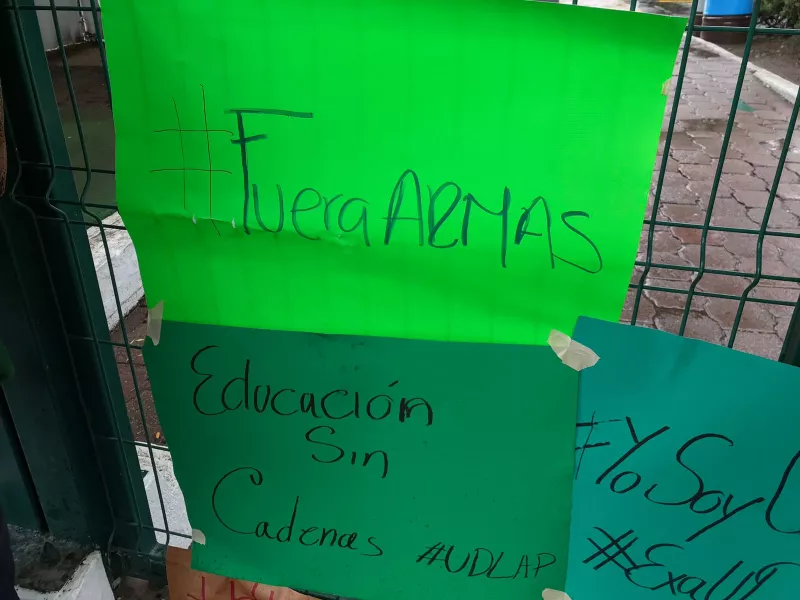 #FueraARMAS
Educación
Sin
Cadenas #UDLAP
#YoSoy